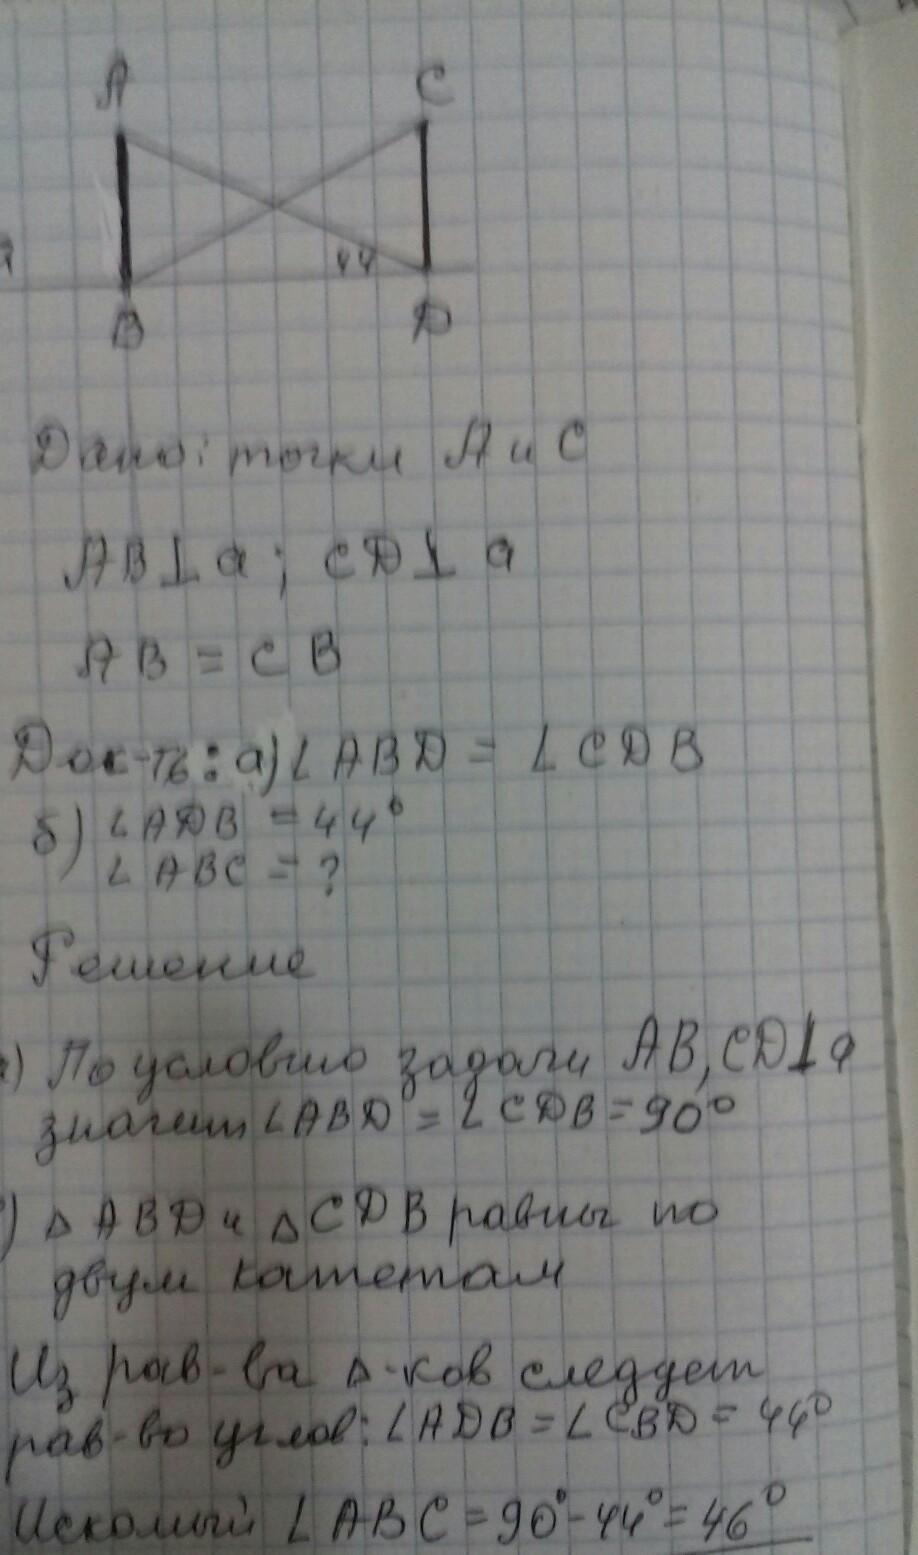 A C
44
B D
Дано: точки A и C
AB⊥a; CD⊥a
AB = CB
Док-ть: а) ∠ABD = ∠CDB
б) ∠ADB = 44°
∠ABC = ?
Решение
) По условию задачи AB, CD⊥a
значит ∠ABD = ∠CDB = 90°
) △ABD и △CDB равны по
двум катетам
Из рав-ва △-ков следует
рав-во углов: ∠ADB = ∠CBD = 44°
Искомый ∠ABC = 90° - 44° = 46°